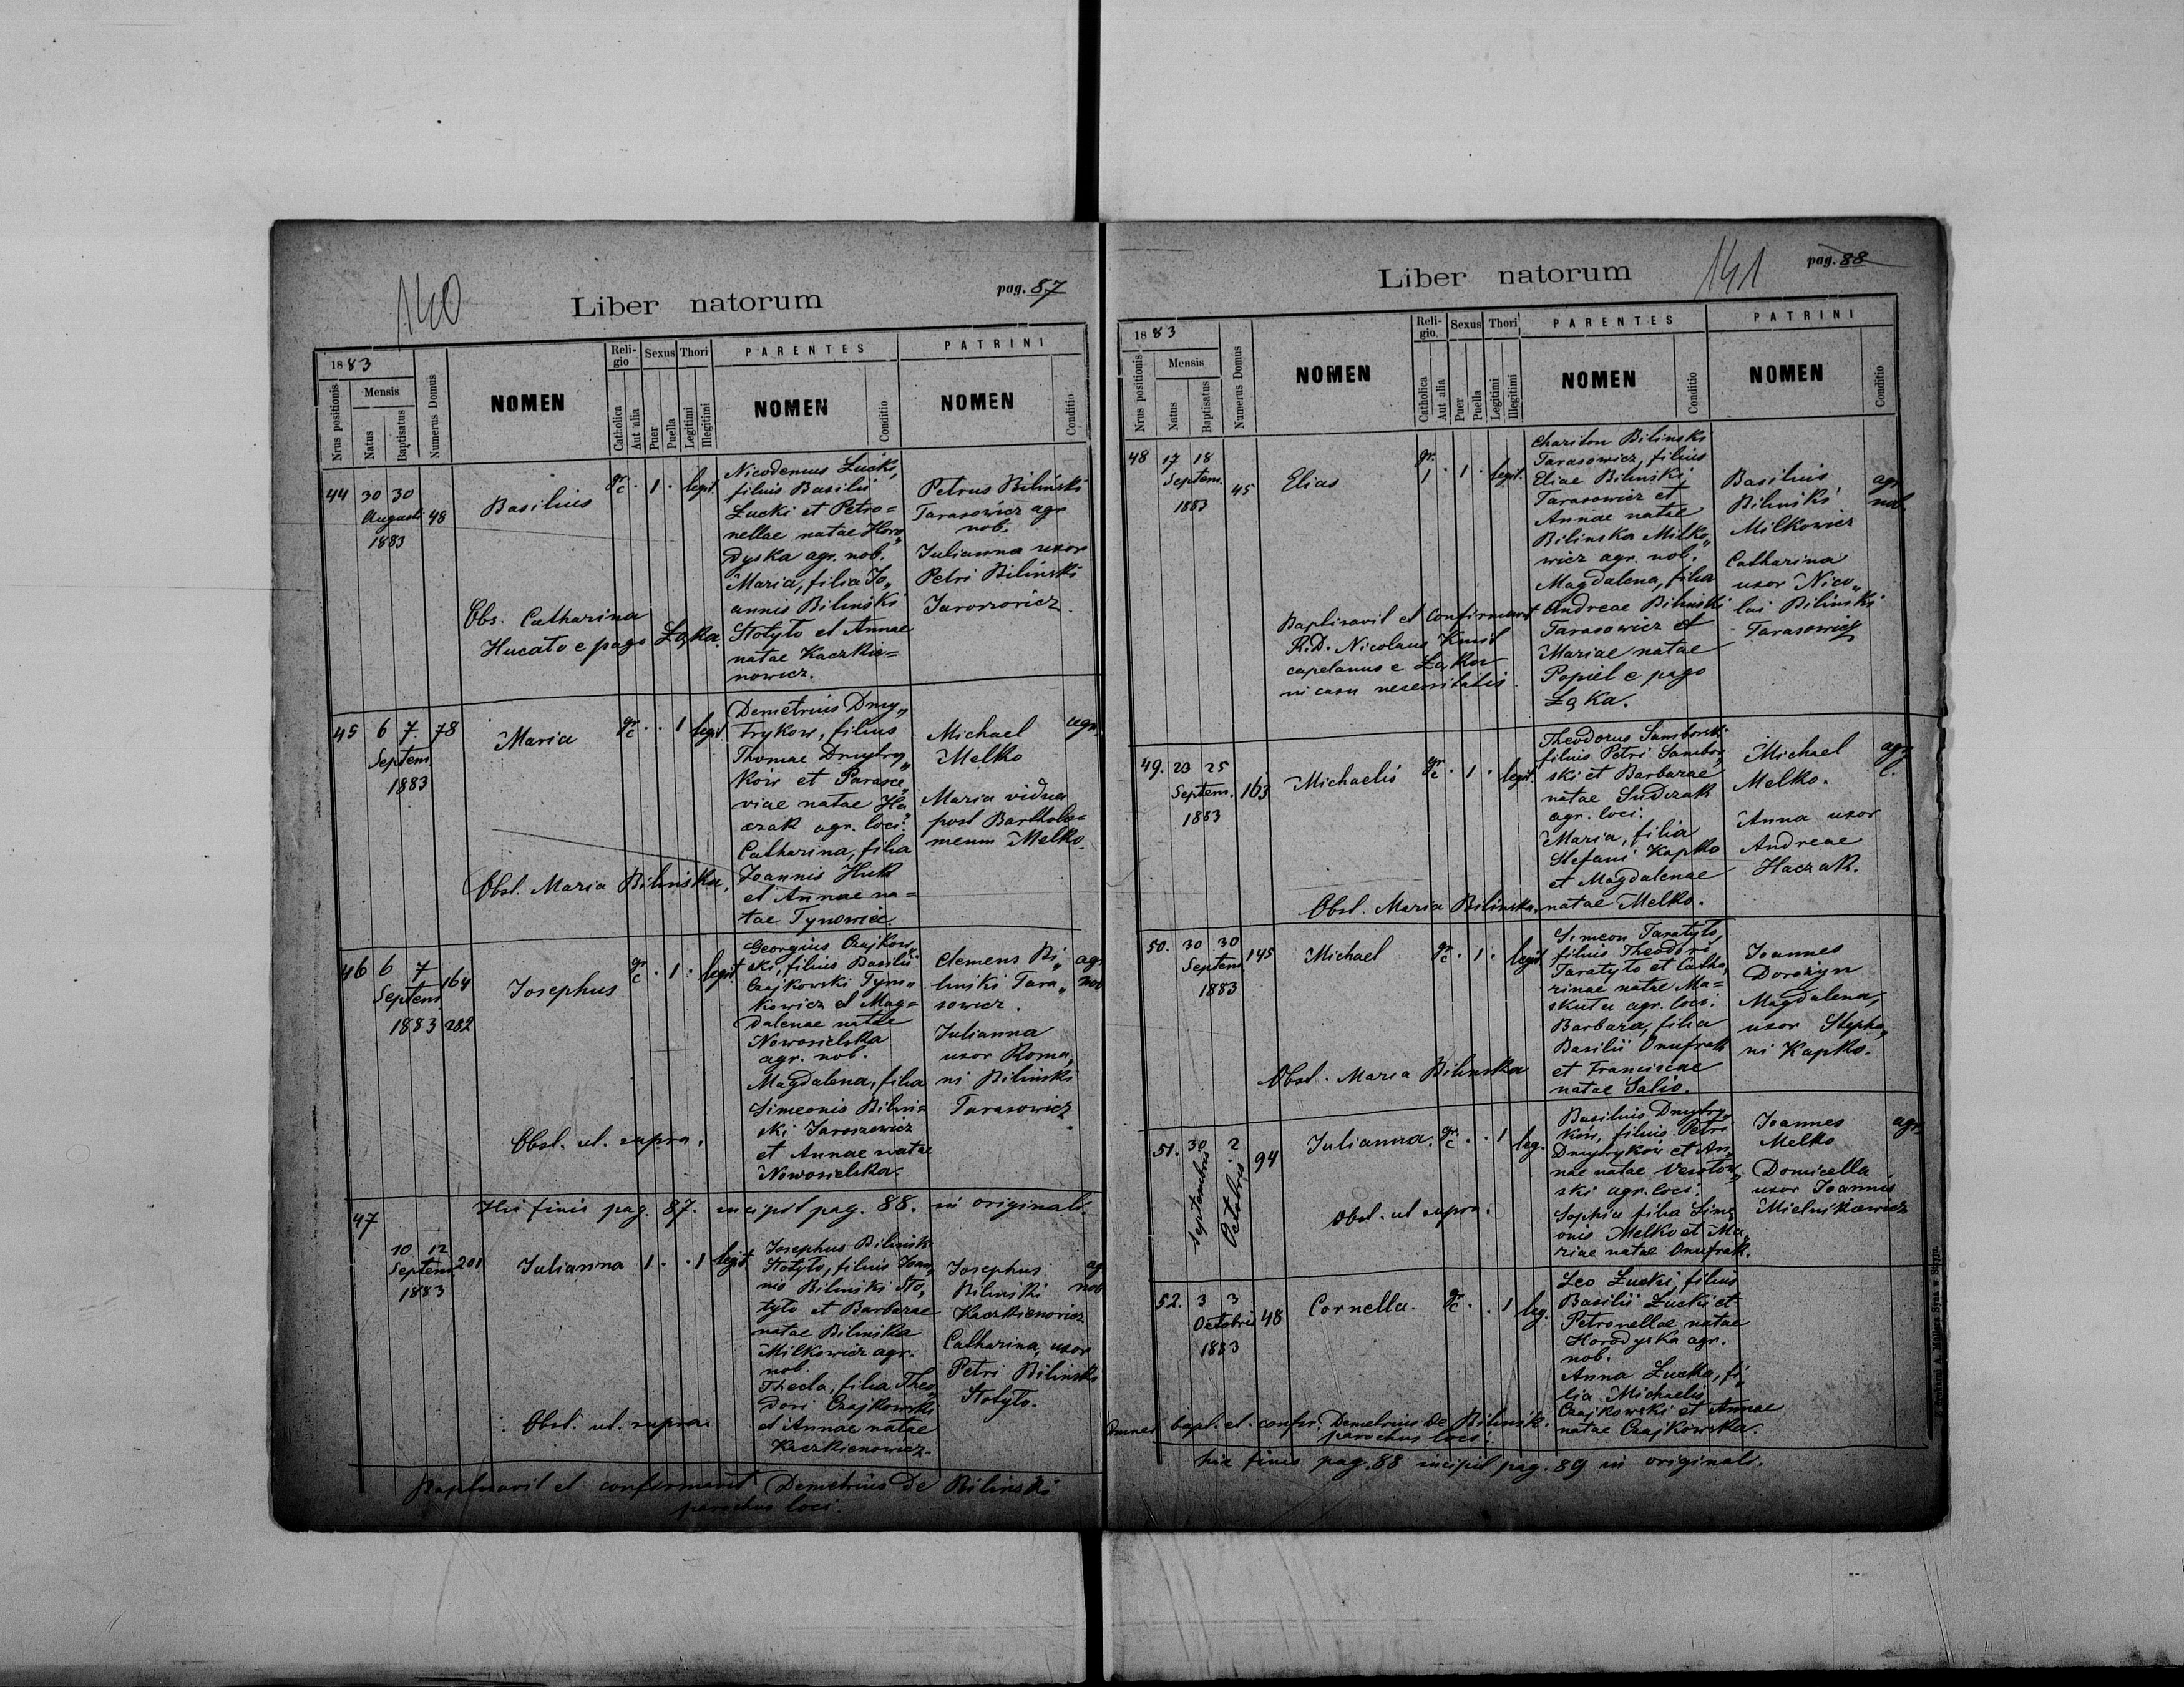 140
Liber natorum
pag. 87
1883
Nrus positionis
Mensis
Natus
Baptisatus
Numerus Domus
NOMEN
Religio
Catholica
Aut alia
Sexus
Puer
Puella
Thori
Legitimi
Illegitimi
PARENTES
NOMEN
Conditio
PATRINI
NOMEN
Conditio
44 30 30
Augusti
1883
48
Basilius
gr. c. · 1 · legit.
Nicodemus Łucki,
filius Basilii
Łucki et Petro=
nellae natae Horo„
dyska agr. nob.
Maria, filia Jo„
annis Bilinski
Stotyto et Annae
natae Kaczkie=
nowicz.
Petrus Biliński
Tarasowicz agr
nob.
Julianna uxor
Petri Biliński
Obs. Catharina
Hucało e pago Łąka.
45 6 7. 78
Septem
1883
Maria
gr. c. · · 1 legit.
Demetrius Dmy„
trykow, filius
Thomae Dmytry„
ków et Parasce„
viae natae Ha„
czak agr. loci.
Catharina, filia
Joannis Huk
et Annae na=
tae Tynowiec
Michael agr.
Melko
Maria vidua
post Bartholo=
meum Melko.
Obst. Maria Bilińska,
46 6 7
Septem
1883
164
282
Josephus
gr. c. · 1 · legit.
Georgius Czajkow„
ski, filius Basilii
Czajkowski Tym„
kowicz et Mag=
dalenae natae
Nowosielska
agr. nob.
Magdalena, filia
Simeonis Bilin=
ski Jaroszewicz
et Annae natae
Nowosielska.
Clemens Bi„ agr
linski Tara„ nob
sowicz.
Julianna
uxor Roma„
ni Bilinski
Tarasowicz
Obst. ut. supra.
47
Hic finis pag. 87. incipit pag. 88. in originali.
10 12
Septem
1883
201
Julianna
1 · · 1 legit
Josephus Bilinski
Stotyto, filius Joan„
nis Bilinski Sto„
tyto et Barbarae
natae Bilinska
Milkowicz agr.
nob.
Thecla, filia Theo„
dori Czajkowski
et Annae natae
Kaczkienowicz.
Josephus ag
Bilinski nob
Kaczkienowicz
Catharina, uxor
Petri Bilinski
Stotyto.
Obst. ut. supra.
Baptisavit et confirmavit Demetrius de Bilinski
parochus loci.
141
Liber natorum
pag. 88
1883
Nrus positionis
Mensis
Natus
Baptisatus
Numerus Domus
NOMEN
Religio.
Catholica
Aut alia
Sexus
Puer
Puella
Thori
Legitimi
Illegitimi
PARENTES
NOMEN
Conditio
PATRINI
NOMEN
Conditio
48 17 18
Septem.
1883
45
Elias
gr. 1 · 1 · legit.
Chariton Bilinski
Tarasowicz, filius
Eliae Bilinski
Tarasowicz et
Annae natae
Bilinska Milko„
wicz agr. nob.
Magdalena, filia
Andreae Bilinski
Tarasowicz et
Mariae natae
Popiel e pago
Łąka.
Basilius agr
Bilinski nob
Milkowicz
Catharina
uxor Nico„
lai Bilinski
Tarasowicz
Baptisavit et Confirmavit
R.D. Nicolaus
capelanus e Łąka
in casu necessitatis.
49. 23 25
Septem.
1883
163
Michaelis
gr. c. · 1 · legit.
Theodorus Samborski
filius Petri Sambor„
ski et Barbarae
natae Sudczak
agr. loci.
Maria, filia
Stefani Kapko
et Magdalenae
natae Melko.
Michael agr
Melko. l.
Anna uxor
Andreae
Haczak.
Obst. Maria Bilinska.
50. 30 30
Septem
1883
145
Michael
gr. c. · 1 · legit
Simeon Taratyto,
filius Theodori
Taratyto et Catha„
rinae natae Ma=
agr. loci.
Barbara, filia
Basilii Onufrak
et Franciscae
natae Salio.
Joannes
Dorożyn
Magdalena,
uxor Stepha„
ni Kapko.
Obst. Maria Bilinska
51. 30 2
Septembris Octobris
94
Julianna.
gr. c. · · 1 leg.
Basilius Dmytry„
ków, filius Petri
Dmytryków et An„
nae natae Wesołow„
ski agr. loci.
Sophia filia Sime„
onis Melko et Ma„
riae natae Onufrak.
Joannes agr.
Melko
Domicella
uxor Joannis
Mielnikiewicz
Obst. ut supra.
52. 3 3
Octobris
1883
48
Cornella.
gr. c. · · 1 leg.
Leo Łucki, filius
Basilii Łucki et
Petronellae natae
Horodyska agr.
nob.
Anna Łucka, fi„
lia Michaelis
Czajkowski et Annae
natae Czajkowska.
Omnes bapt. et. confir. Demetrius de Bilinski.
parochus loci.
hic finis pag. 88 incipit pag. 89 in originali.